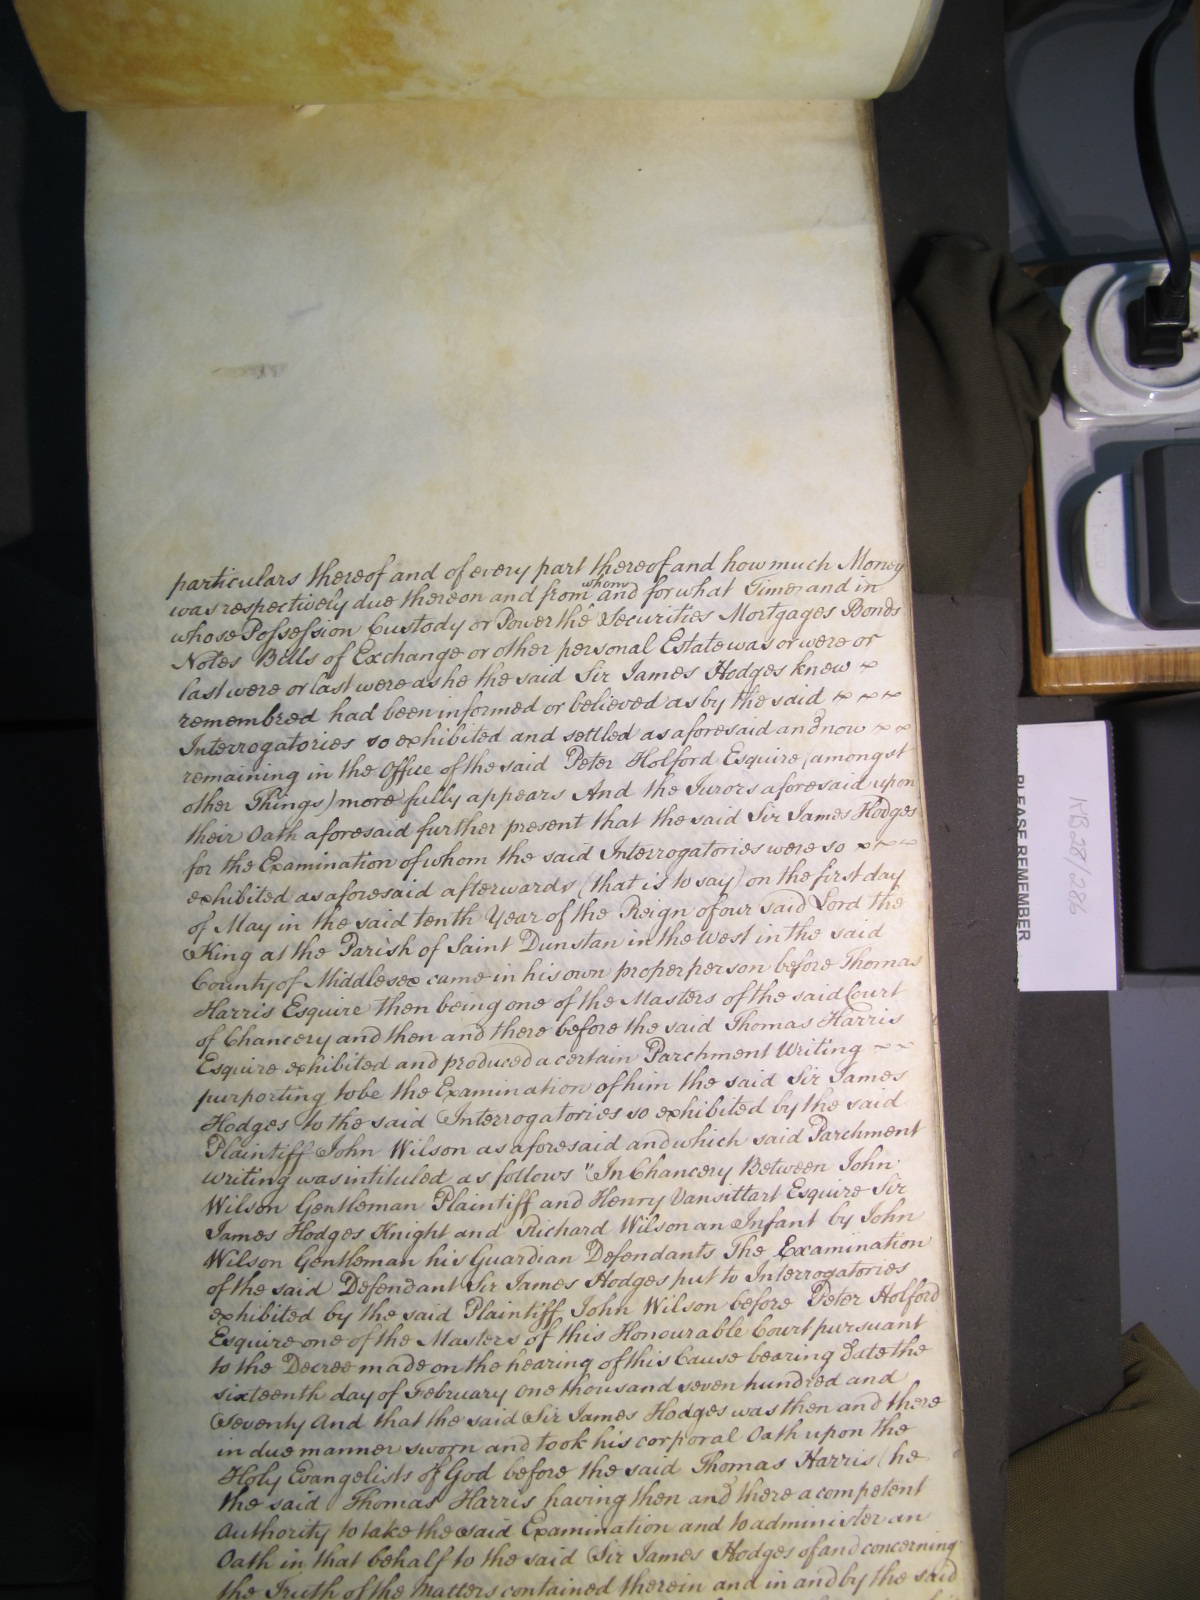 particulars thereof and of every part thereof and how much Money
was respectively due thereon and from whom and for what Time and in
whose Possession Custody or Power the Securities Mortgages Bonds
Notes Bills of Exchange or other personal Estate was or were or
last were or last were as he the said Sir James Hodges knew
remembred had been informed or believed as by the said
Interrogatories so exhibited and settled as aforesaid and now
remaining in the Office of the said Peter Holford Esquire (amongst
other Things) more fully appears And the Jurors aforesaid upon
their Oath aforesaid further present that the said Sir James Hodges
for the Examination of whom the said Interrogatories were so
exhibited as aforesaid afterwards (that is to say) on the first day
of May in the said tenth Year of the Reign of our said Lord the
King at the Parish of Saint Dunstan in the West in the said
County of Middlesex came in his own proper person before Thomas
Harris Esquire then being one of the Masters of the said Court
of Chancery and then and there before the said Thomas Harris
Esquire exhibited and produced a certain Parchment Writing
purporting to be the Examination of him the said Sir James
Hodges to the said Interrogatories so exhibited by the said
Plaintiff John Wilson as aforesaid and which said Parchment
writing was intituled as follows "In Chancery Between John
Wilson Gentleman Plaintiff and Henry Vansittart Esquire Sir
James Hodges Knight and Richard Wilson an Infant by John
Wilson Gentleman his Guardian Defendants The Examination
of the said Defendant Sir James Hodges put to Interrogatories
exhibited by the said Plaintiff John Wilson before Peter Holford
Esquire one of the Masters of this Honourable Court pursuant
to the Decree made on the hearing of this Cause bearing Date the
sixteenth day of February one thousand seven hundred and
Seventy And that the said Sir James Hodges was then and there
in due manner sworn and took his corporal Oath upon the
Holy Evangelists of God before the said Thomas Harris (he
the said Thomas Harris having then and there a competent
Authority to take the said Examination and to administer an
Oath in that behalf to the said Sir James Hodges of and concerning
the Truth of the Matters contained therein and in and by the said
KB 28/286
PLEASE REMEMBER